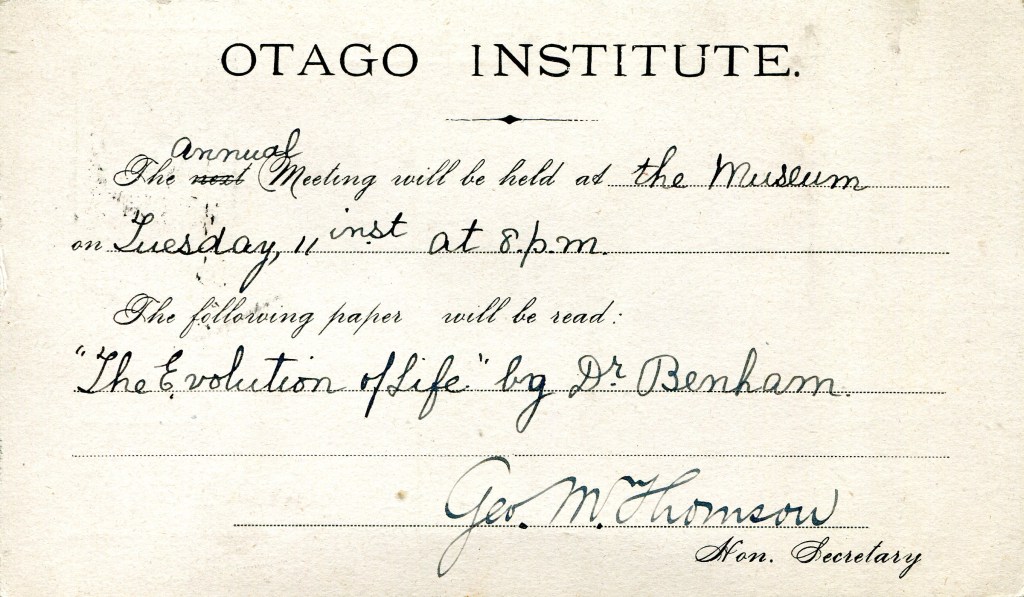 OTAGO INSTITUTE.
annual
The next Meeting will be held at the Museum
on Tuesday, 11 inst at 8.p.m.
The following paper will be read:
"The Evolution of Life" by Dr Benham.
Geo. M. Thomson
Hon. Secretary